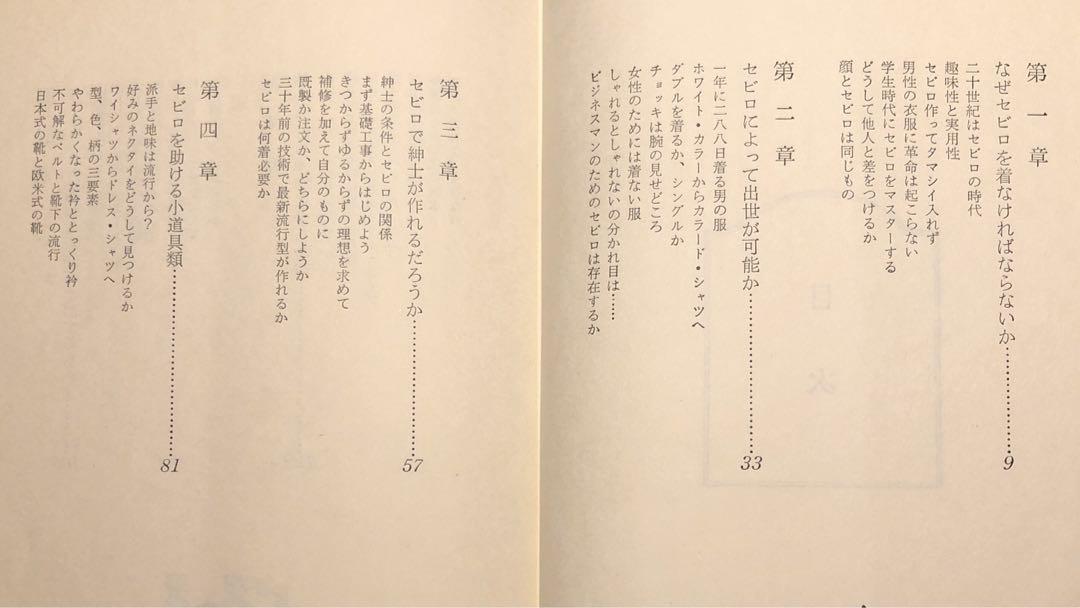 第一章
なぜセビロを着なければならないか……………9
二十世紀はセビロの時代
趣味性と実用性
セビロ作ってタマシイ入れず
男性の衣服に革命は起こらない
学生時代にセビロをマスターする
どうして他人と差をつけるか
顔とセビロは同じもの
第二章
セビロによって出世が可能か……………33
一年に二八八日着る男の服
ホワイト・カラーからカラード・シャツへ
ダブルを着るか、シングルか
チョッキは腕の見せどころ
女性のためには着ない服
しゃれるとしゃれないの分かれ目は……
ビジネスマンのためのセビロは存在するか
第三章
セビロで紳士が作れるだろうか……………57
紳士の条件とセビロの関係
まず基礎工事からはじめよう
きつからずゆるからずの理想を求めて
補修を加えて自分のものに
既製か注文か、どちらにしようか
三十年前の技術で最新流行型が作れるか
セビロは何着必要か
第四章
セビロを助ける小道具類……………81
派手と地味は流行から?
好みのネクタイをどうして見つけるか
ワイシャツからドレス・シャツへ
型、色、柄の三要素
やわらかくなった衿ととっくり衿
不可解なベルトと靴下の流行
日本式の靴と欧米式の靴